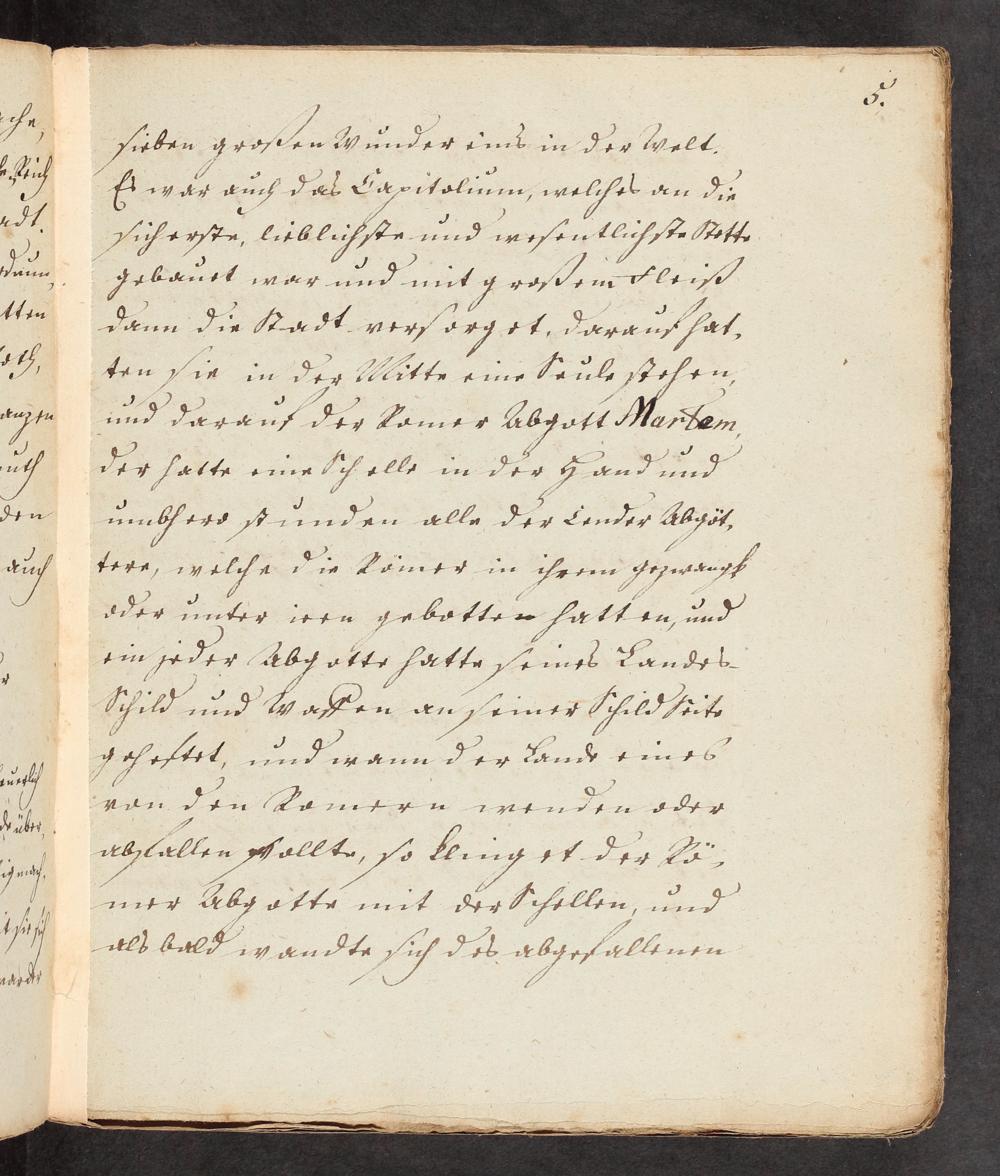 5.
sieben großen Wunder eins in der Welt.
Es war auch das Capitolium, welches an die
sicherste, lieblichste und wesentlichste Stette
gebauet war und mit großem Fleiß
dann die Stadt versorget. darauf hat,
ten sie in der Mitte eine Seule stehen,
und darauf der Romer Abgott Martem,
der hatte eine Schelle in der Hand und
umbhero stunden alle der Lender Abgöt,
tere, welche die Römer in ihrem gezwangk
oder unter iren gebotten hatten, und
ein jeder Abgotte hatte seines Landes-
Schild und Waffen an seiner Schild Seite
geheftet, und wann der Lande eines
von den Romern wenden oder
abfallen sollte, so klinget der Rö,
mer Abgotte mit der Schellen, und
als bald wandte sich des abgefallenen